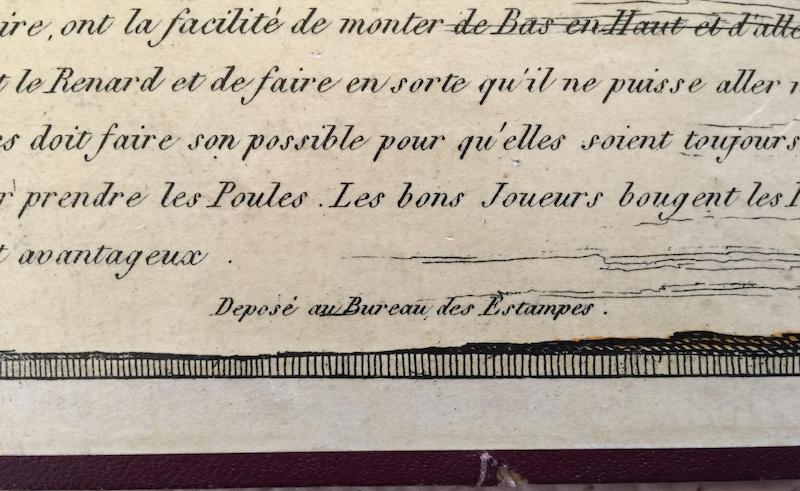 ire, ont la facilité de monter de Bas en Haut et d'alle
t le Renard et de faire en sorte qu'il ne puisse aller
es doit faire son possible pour qu'elles soient toujours
r prendre les Poules. Les bons Joueurs bougent les
t avantageux.
Deposé au Bureau des Estampes.